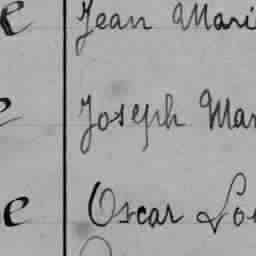 e Jean Mari
e Joseph Mar
e Oscar Lo